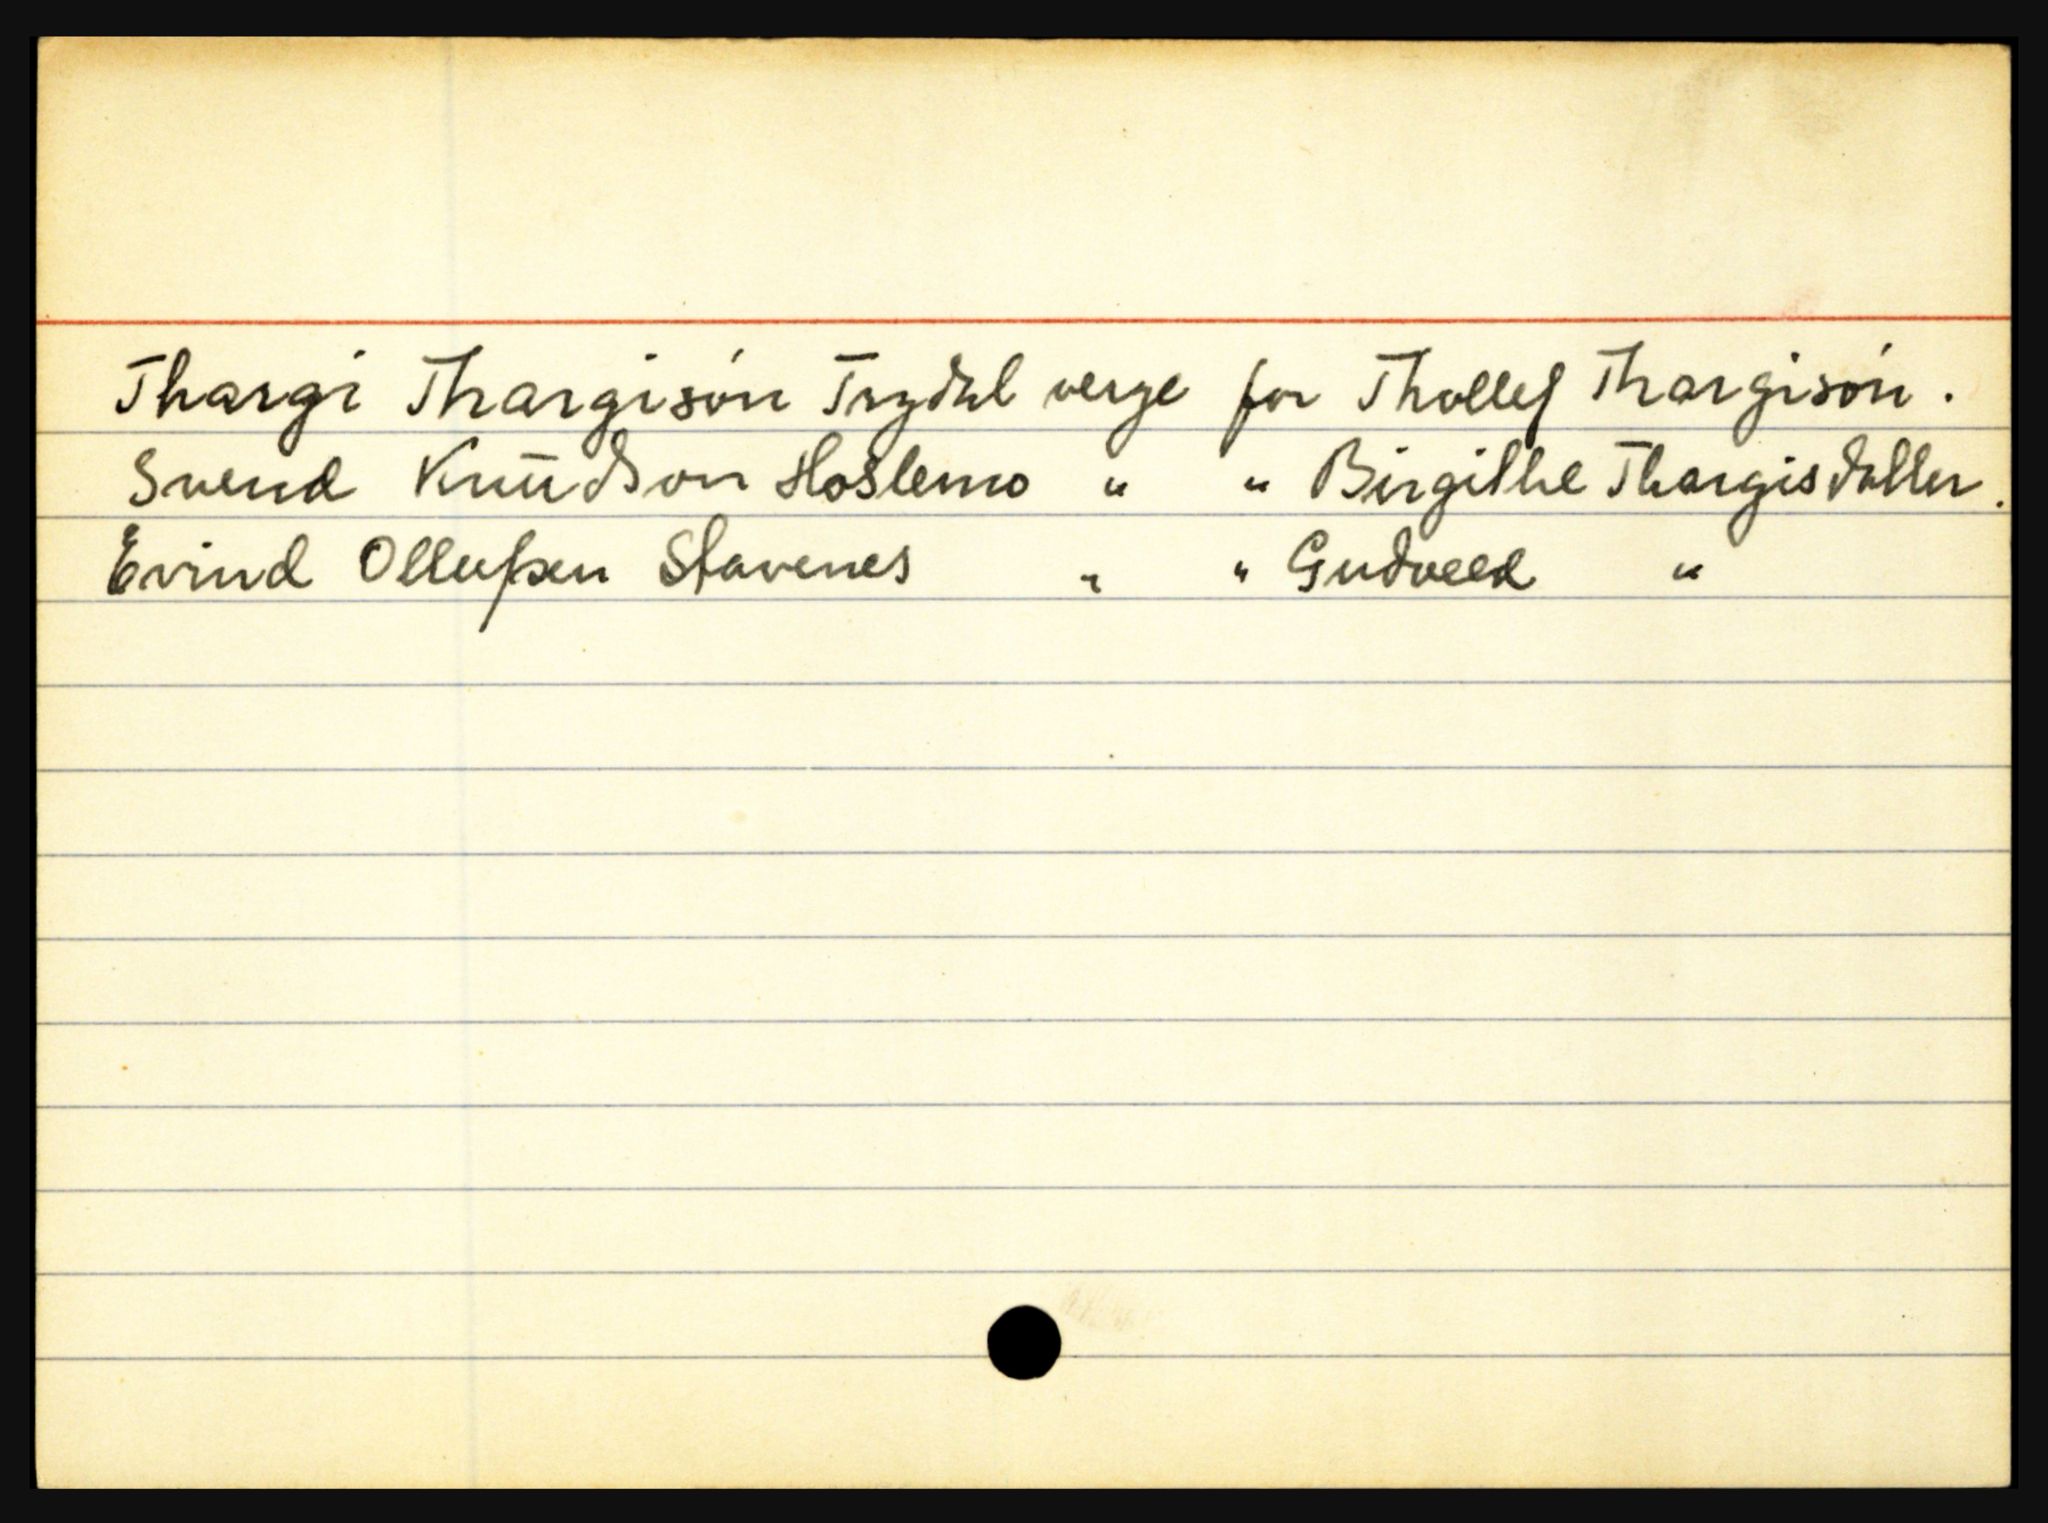 Thargi Thargisón Trydal verge for Thollef Thargisón.
Svend Knüdson Hoslemo " " Birgithe Thargisdatter.
Evind Ollufsen Stavenes " " Gudveed "